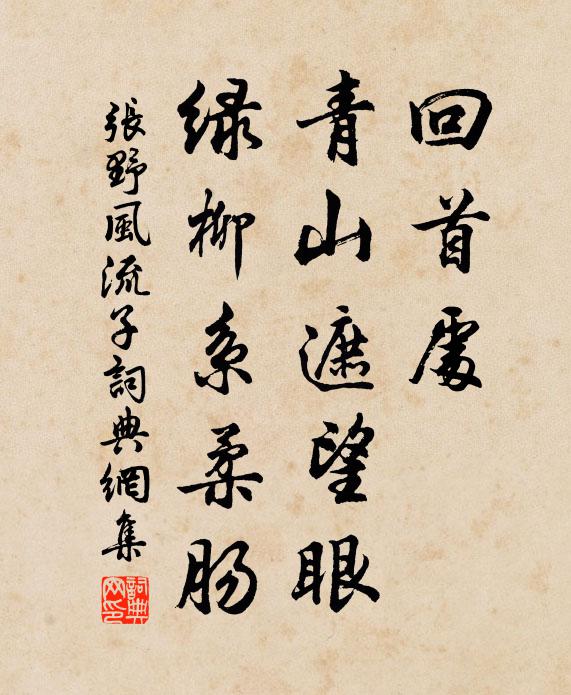 回首處
青山遮望眼
绿柳系柔肠
張野風流子詞典網集
詞典网印